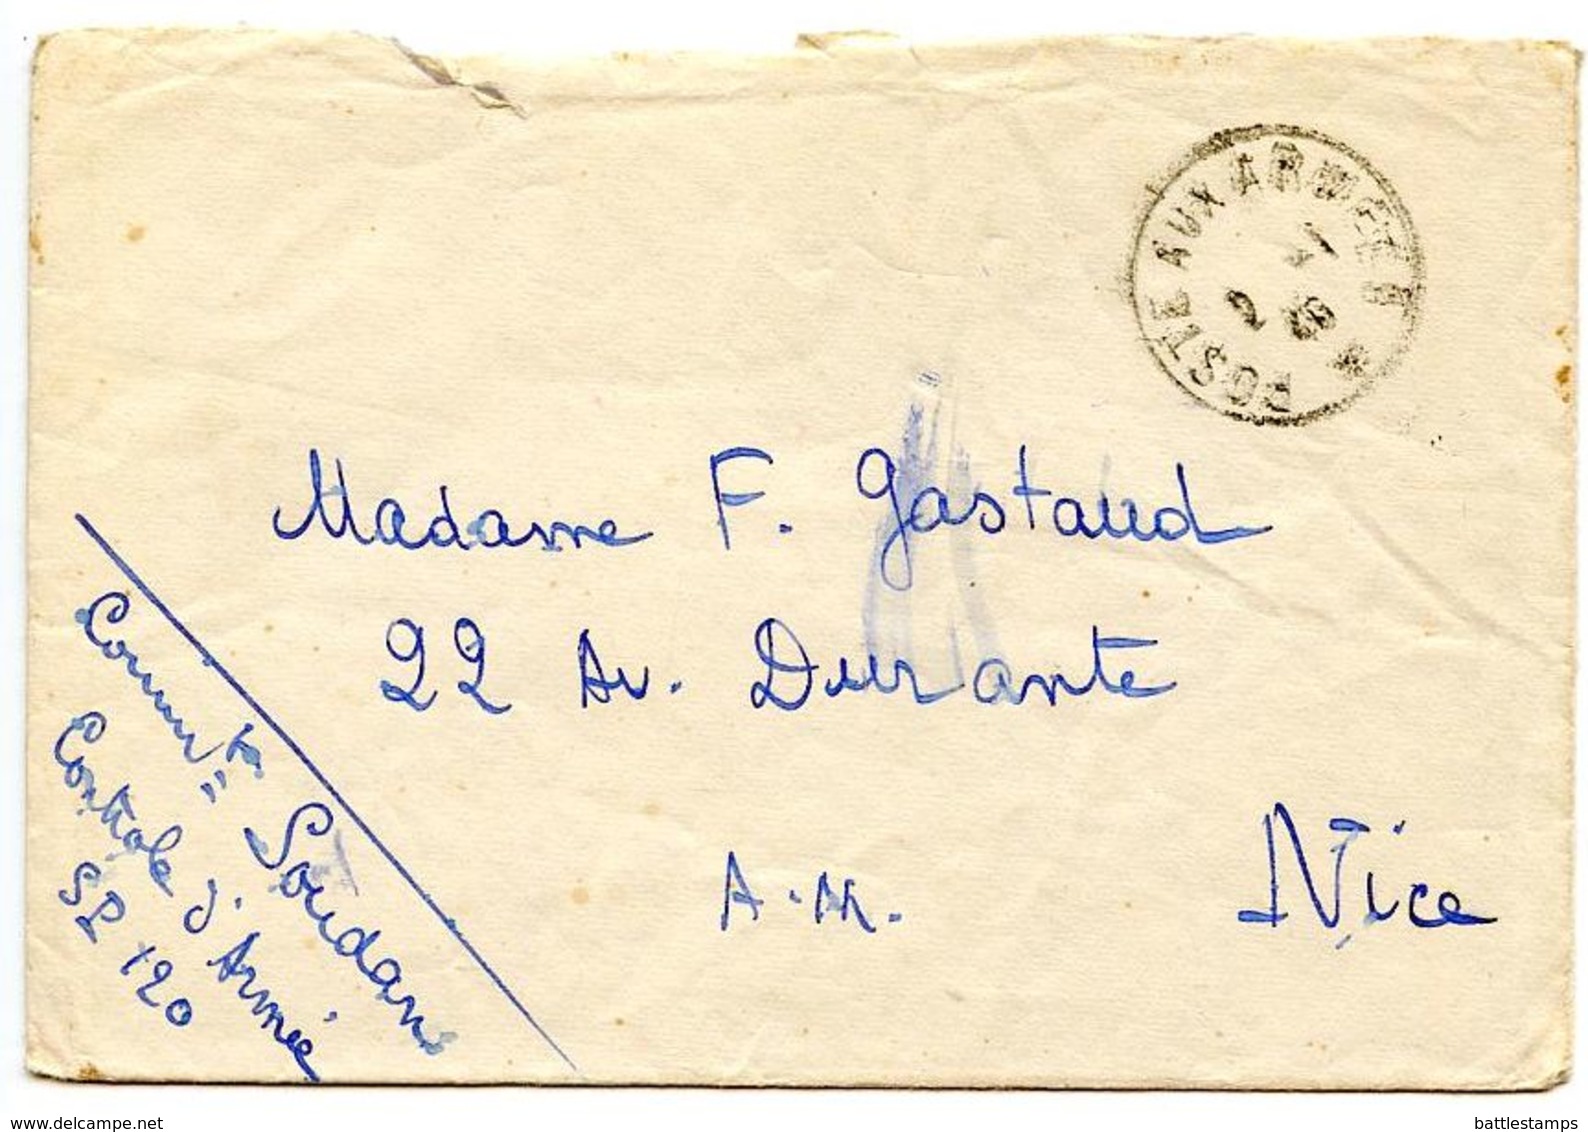 POSTE AUX ARMEES
Madame F. Gastaud
22 Av. Durante
A.M. Nice
Contrôle d'Armée
SP 120
www.delcampe.net
battlestamps